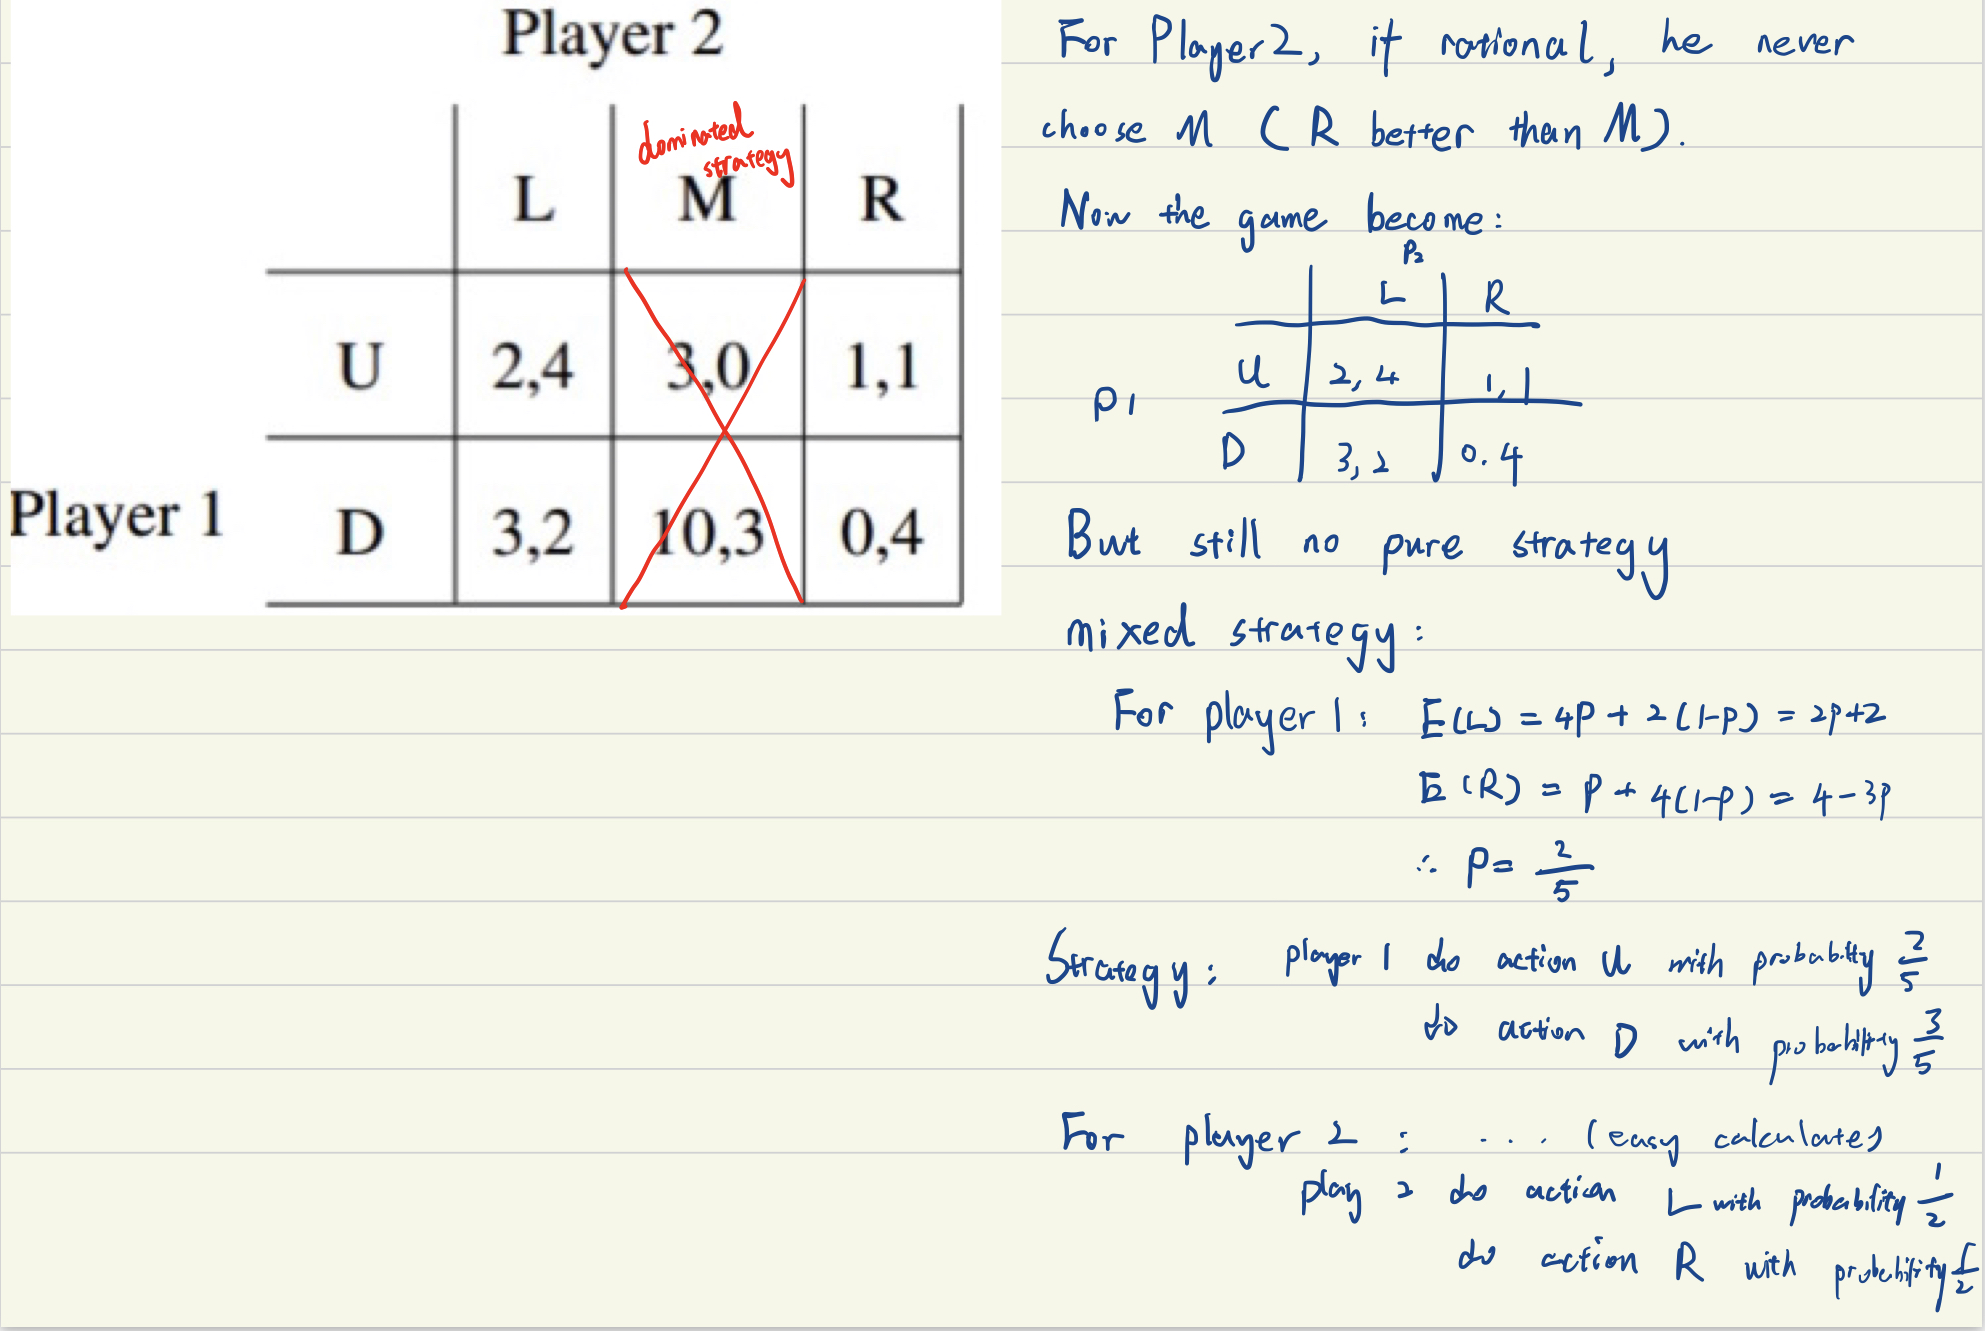 Player 2
dominated
strategy
L M R
U 2,4 3,0 1,1
Player 1 D 3,2 10,3 0,4
For Player 2, if rational, he never
choose M ( R better than M).
Now the game become:
P2
L R
U 2, 4 1, 1
P1
D 3, 2 0. 4
But still no pure strategy
mixed strategy:
For player 1: E(L) = 4P + 2(1-P) = 2P+2
E(R) = P + 4(1-P) = 4-3P
∴ P= 2/5
Strategy: player 1 do action U with probability 2/5
do action D with probability 3/5
For player 2 : ... (easy calculate)
play 2 do action L with probability 1/2
do action R with probability 1/2